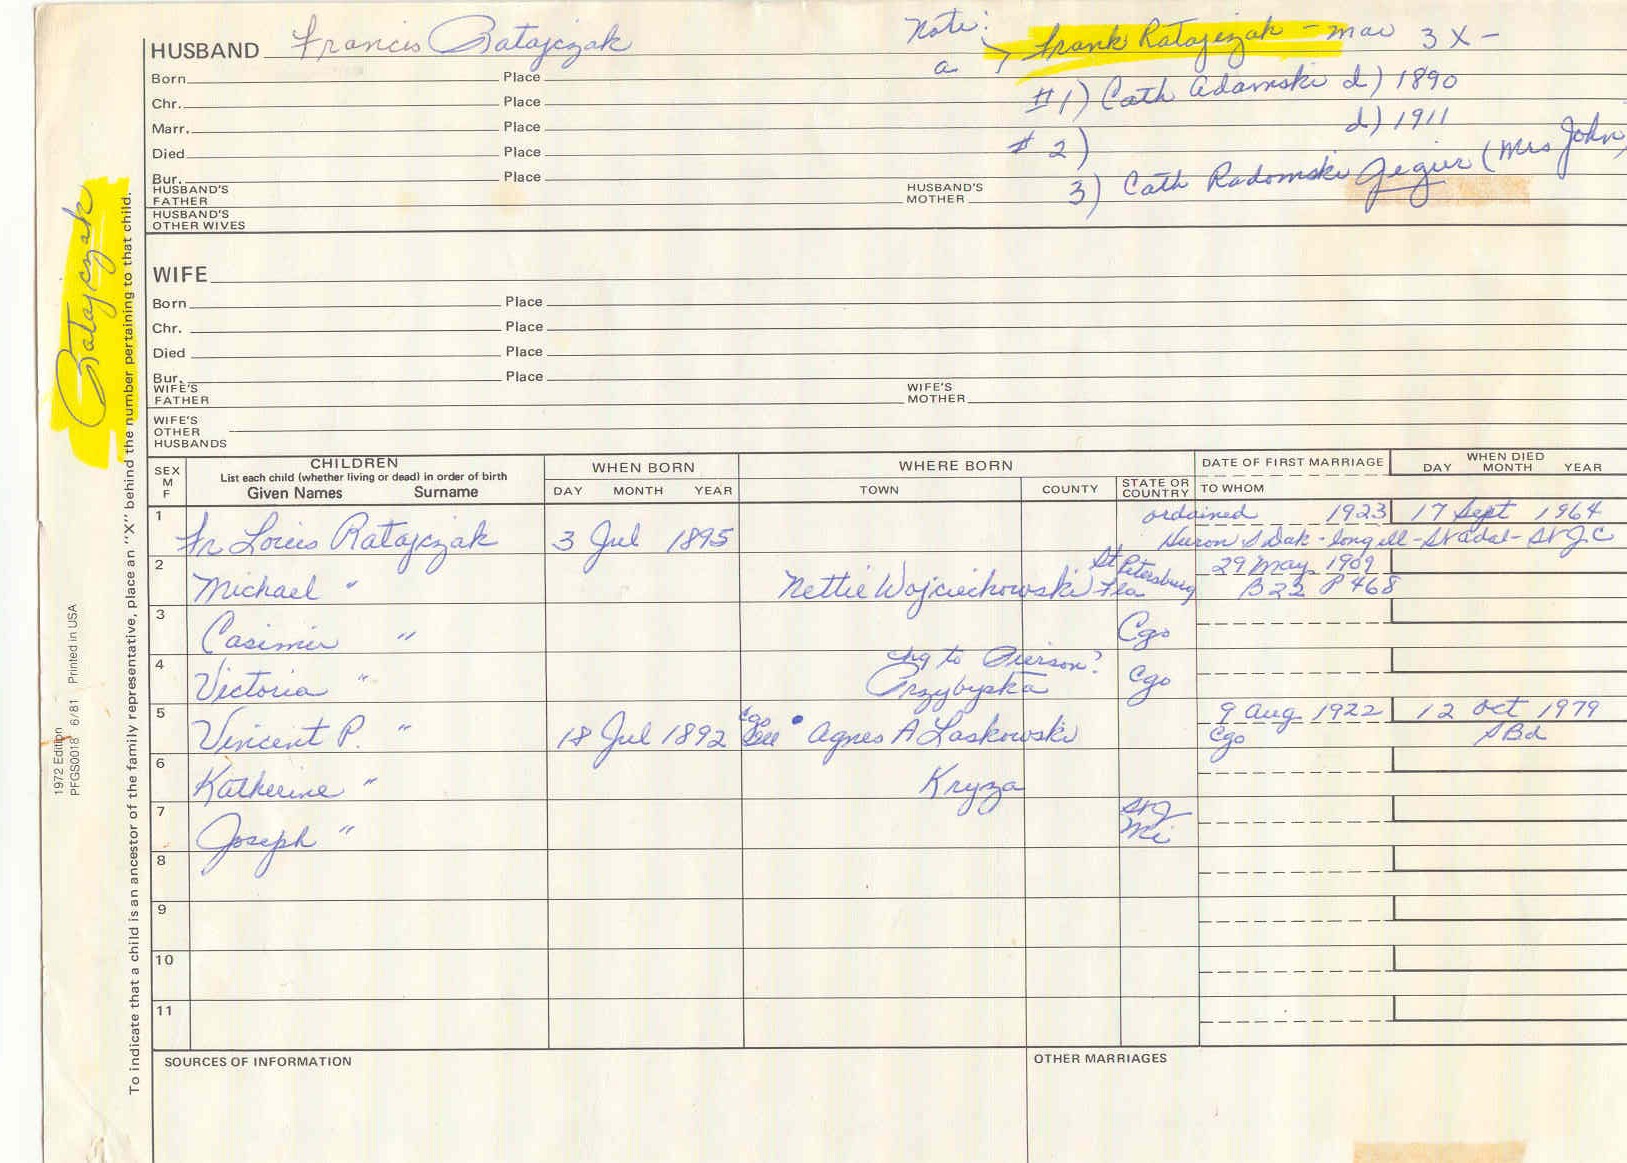 HUSBAND Francis Ratajczak
Note: Frank Ratajczak - mar 3 X -
a
Born Place
#1) Cath Adamski d) 1890
Chr. Place
d) 1911
Marr. Place
# 2)
Died Place
3) Cath Radomski Gegier (Mrs John
Bur. Place
HUSBAND'S FATHER HUSBAND'S MOTHER
HUSBAND'S OTHER WIVES
WIFE
Born Place
Chr. Place
Died Place
Bur. Place
WIFE'S FATHER WIFE'S MOTHER
WIFE'S OTHER HUSBANDS
Ratajczak
To indicate that a child is an ancestor of the family representative, place an "X" behind the number pertaining to that child.
1972 Edition
PFGS0018 6/81 Printed in USA
SEX M F
CHILDREN
List each child (whether living or dead) in order of birth
Given Names Surname
WHEN BORN
DAY MONTH YEAR
WHERE BORN
TOWN COUNTY STATE OR COUNTRY
DATE OF FIRST MARRIAGE
TO WHOM
WHEN DIED
DAY MONTH YEAR
1 Fr Louis Ratajczak 3 Jul 1895 ordained 1923 17 Sept 1964
Huron S Dak - long ill - St Adal - St J C
2 Michael " Nettie Wojciechowski St Petersburg Fla 29 May 1909
B22 P468
3 Casimir " Cgo
4 Victoria " chg to Pierson?
Przybyska Cgo
5 Vincent P. " 18 Jul 1892 Cgo See Agnes A Laskowski 9 Aug 1922 12 Oct 1979
Cgo SBd
6 Katherine " Kryza
7 Joseph " St J
Mi
8
9
10
11
SOURCES OF INFORMATION OTHER MARRIAGES